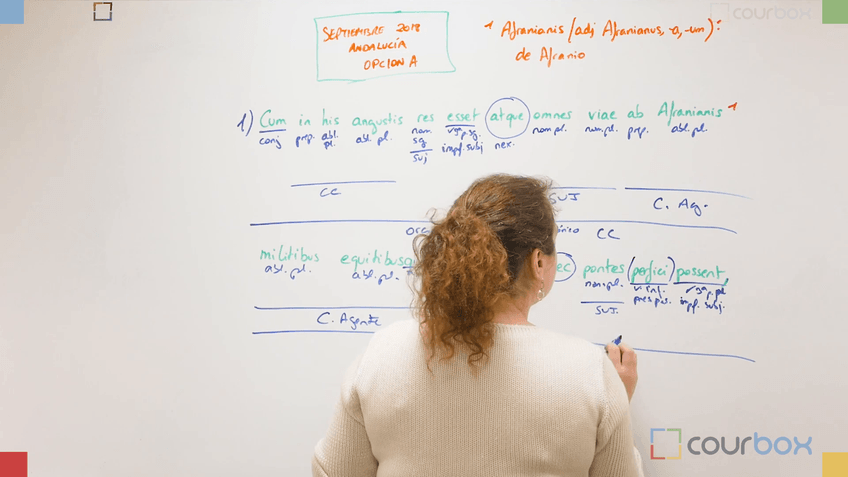 courbox
SEPTIEMBRE 2018
ANDALUCÍA
OPCION A
* Afranianis (adj Afranianus, -a, -um):
de Afranio
1) Cum in his angustis res esset atque omnes viae ab Afranianis *
conj prep. abl. pl. abl. pl. nom. sg v3ªp.sg. impf. subj nex. nom pl. nom. pl. prep. abl. pl.
SUJ
CC SUJ C. Ag.
CC
militibus equitibus pontes (perfici) possent,
abl. pl. abl. pl. nom. pl. v. inf. pres. pas. v3ªp. pl. impf. subj.
SUJ.
C. Agente
courbox